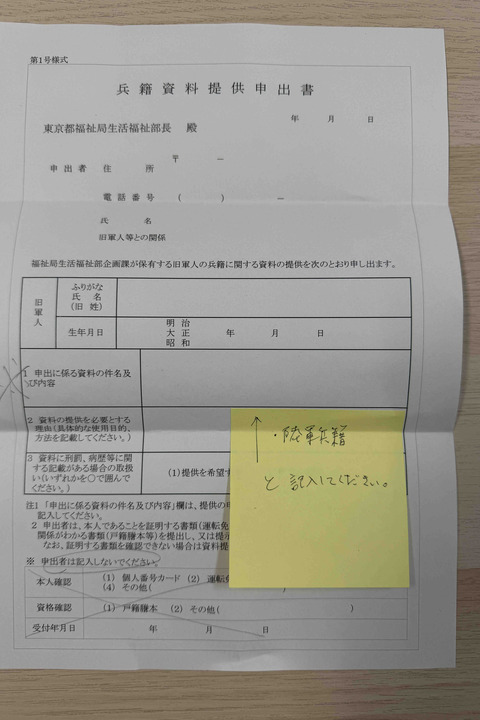 第1号様式
兵籍資料提供申出書
年 月 日
東京都福祉局生活福祉部長 殿
〒 －
申出者 住 所
電話番号 ( ) －
氏 名
旧軍人等との関係
福祉局生活福祉部企画課が保有する旧軍人の兵籍に関する資料の提供を次のとおり申し出ます。
旧軍人
ふりがな
氏 名
(旧 姓)
生年月日
明治
大正 年 月 日
昭和
1 申出に係る資料の件名及
び内容
2 資料の提供を必要とする
理由(具体的な使用目的、
方法を記載してください。)
3 資料に刑罰、病歴等に関
する記載がある場合の取扱
い(いずれかを○で囲んで
ください。)
(1)提供を希望す
↑・陸軍兵籍
と記入してください。
注1 「申出に係る資料の件名及び内容」欄は、提供の申
記入してください。
2 申出者は、本人であることを証明する書類(運転免
関係がわかる書類(戸籍謄本等)を提出し、又は提示
なお、証明する書類を確認できない場合は資料提
※ 申出者は記入しないでください。
本人確認
(1) 個人番号カード (2) 運転免
(4) その他(
資格確認
(1) 戸籍謄本 (2) その他( )
受付年月日
年 月 日